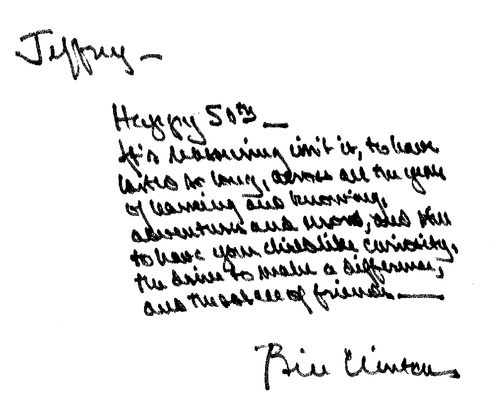 Jeffrey —
Happy 50th —
It's reassuring isn't it, to have
lasted as long, across all the years
of learning and knowing,
adventures and, and still
to have your childlike curiosity,
the drive to make a difference,
and the solace of friends. —
Bill Clinton